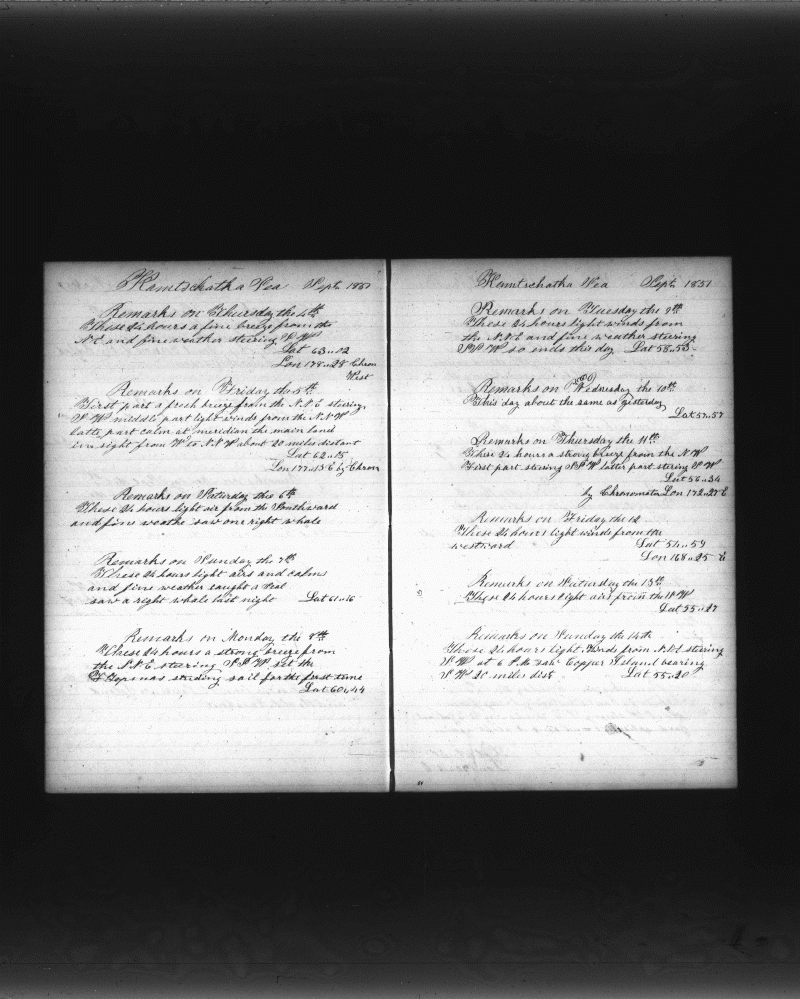 Kamtschatka Sea Sept. 1851
Remarks on Thursday the 4th
These 24 hours a fine breeze from the
N E and fine weather steering S W
Lat 63.02
Lon 178.28 Chron
West
Remarks on Friday the 5th
First part a fresh breeze from the N N E steering
S W middle part light winds from the N N W
latter part calm at meridian the main land
in sight from W to N N W about 20 miles distant
Lat 62.15
Lon 177.13 E by Chron
Remarks on Saturday the 6th
These 24 hours light air from the Southward
and fine weathe saw one right whale
Remarks on Sunday the 7th
These 24 hours light airs and calms
and fine weather caught a seal
saw a right whale last night Lat 61.16
Remarks on Monday the 8th
These 24 hours a strong breeze from
the N N E steering S S W set the
studing sail for the first time
Lat 60.44
Kamtschatka Sea Sept. 1851
Remarks on Tuesday the 9th
These 24 hours light winds from
the N N E and fine weather steering
S S W 80 miles this day Lat 58.53
Remarks on Wednesday the 10th
This day about the same as yesterday
Lat 57.57
Remarks on Thursday the 11th
These 24 hours a strong breeze from the N W
First part stering S S W latter part stering S W
Lat 56.34
by Chronometer Lon 172.27 E
Remarks on Friday the 12
These 24 hours light winds from the
westward Lat 54.59
Lon 168.25 E
Remarks on Saturday the 13th
These 24 hours light airs from the W
Lat 55.27
Remarks on Sunday the 14th
These 24 hours light winds from N.E steering
S W at 6 P.M saw Copper Island bearing
S W 20 miles dist Lat 55.20